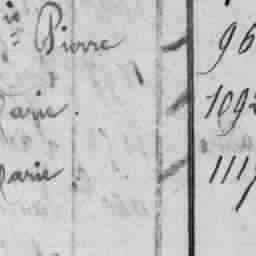 Pierre 96
arie. 1092
arie. 111